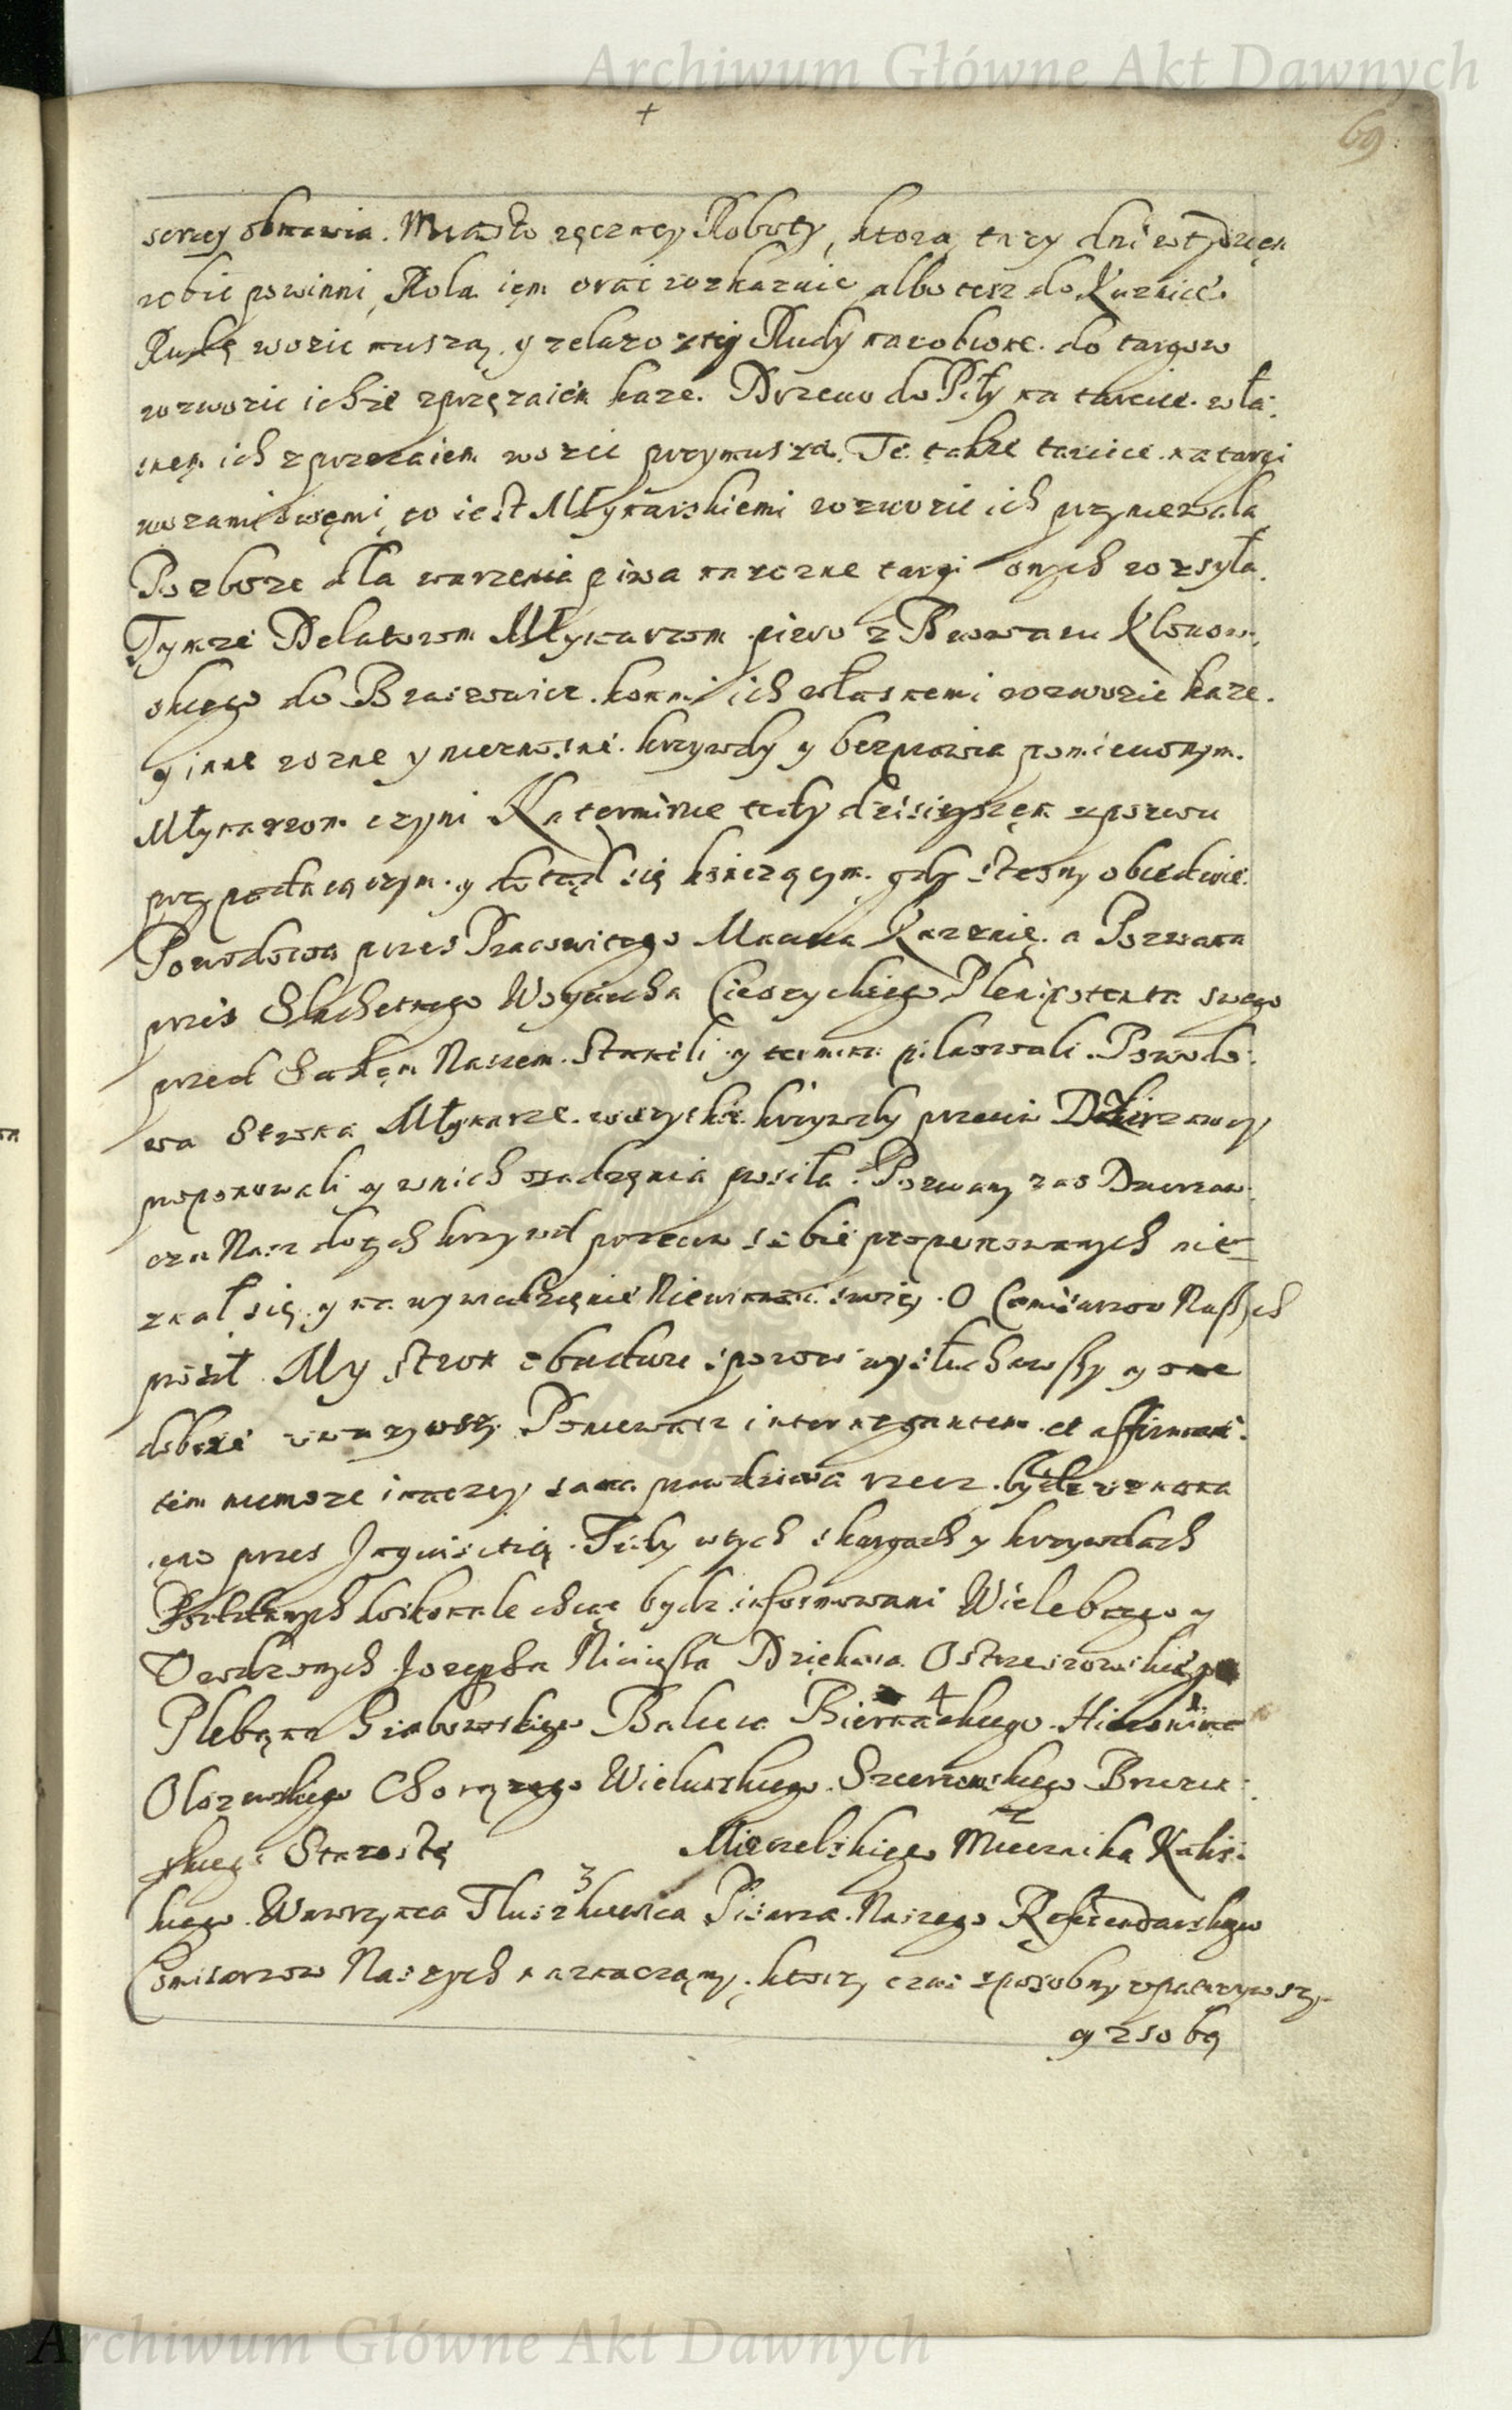 Archiwum Główne Akt Dawnych
69
+
serzey obmawia. Miasto ręczney Roboty, ktorą trzy dni w tydzien
robic powinni, Rola iem orać rozkazuie albo tesz do Kuznice
Rudę wozic muszą, y zelazo z tey Rudy narobione. do targow
rozwozic ichże zprzęzaiem kaze. Drzewo do Piły na tarcice. wła:
snem ich zprzęzaiem wozic przymusza. Te także tarcice na targi
wozami swemi, to iest Młynarskiemi rozwozic ich przyniewala
Po zboze dla warzenia piwa na rozne targi onych rozsyła.
Tymze Delatorom Młynarzom piwo z Browaru Klonow:
skiego do Braszewic. konmi ich własnemi rozwozic kaze.
y inne rozne y nieznosne. krzywdy y bezprawia pomienionym.
Młynarzom czyni Na terminie tedy dzisieyszem z pozwu
przypadaiącym. y dotąd się kończącym. gdy strony obiedwie.
Powodowa przez Pracowitego Macieia Kuznię. a Pozwana
przes Slachetnego Woyciecha Cieszyckiego Plenipotenta swego
przed Sądem Naszem. Stanęli y termin pilnowali. Powodo:
wa Strona Młynarze. wszyskie krzywdy przeciw Dzierzawcy
proponowali y w nich osądzenia prosiła. Pozwany zas Dzierzaw:
cza Nasz do tych krzywd przeciw sobie proponowanych nie
znał się y na wywiedzienie Niewinności swoiey. O Comisarzow Naszych
prosił. My stron obudwu sporow wysłuchawszy y one
dobrze uwazywszy. Poniewasz inter negantem et affirman:
tem niemoze inaczey sama prawdziwa rzecz. bydz uznana
ieno przes Inquisitią. Tedy w tych skargach y krzywdach
doskonale chcąc bydz informowani Wielebnego y
Urodzonych Jozepha Dziekana Ostrzeszowskiego
Plebana Grabowskiego Biernackiego. 4
Olszewskiego Chorązego Wieluńskiego.
skiego Starostę Mierzelskiego Miecznika Kalis: 2
kiego. Wawrzynca Pisarza Naszego Referendarskiego 3
Comisarzow Naszych naznaczamy. ktorzy czas sposobny upatrzywszy
y z sobą
Archiwum Główne Akt Dawnych